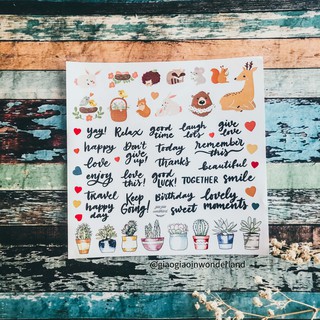 yay! Relax good time laugh lots give love
happy Don't give up! today remember this
love thanks beautiful
enjoy love this! good LUCK! TOGETHER smile
Travel Keep Going! Birthday lovely moments
happy day sweet
@giaogiaoinwonderland